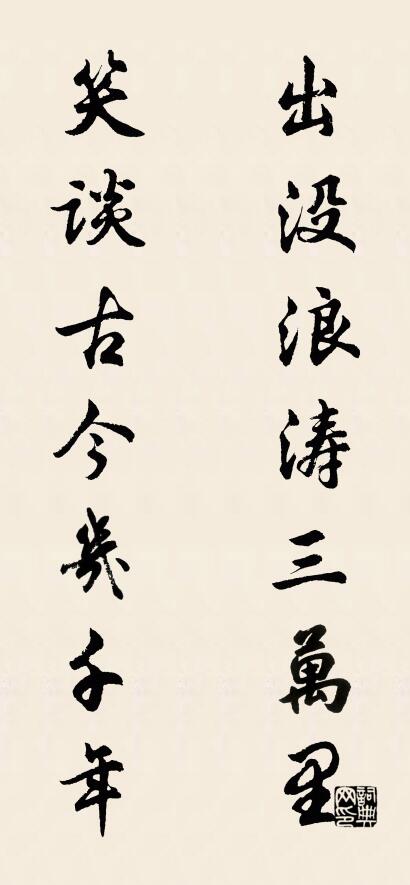 出没浪涛三萬里
笑谈古今幾千年
詞典网印